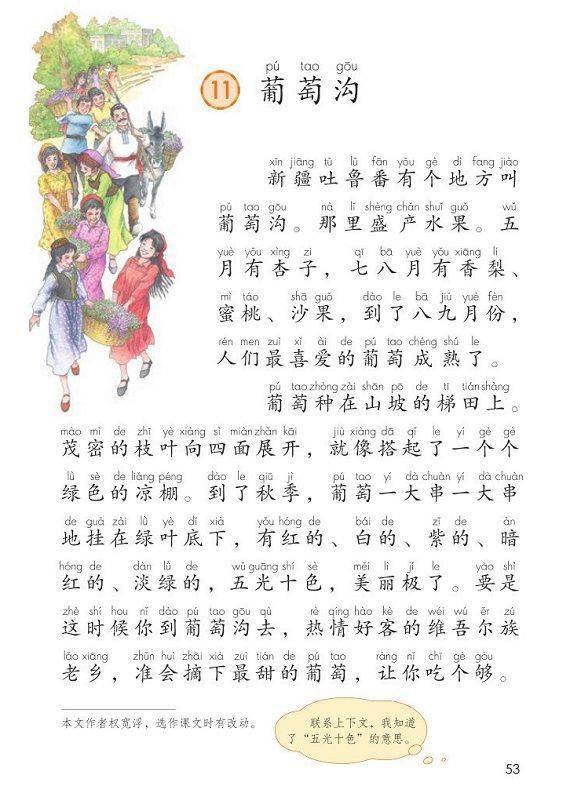 pú tao gōu
11 葡萄沟
xīn jiāng tǔ lǔ fān yǒu gè dì fang jiào
新疆吐鲁番有个地方叫
pú tao gōu nà lǐ shèng chǎn shuǐ guǒ wǔ
葡萄沟。那里盛产水果。五
yuè yǒu xìng zi qī bā yuè yǒu xiāng lí
月有杏子，七八月有香梨、
mì táo shā guǒ dào le bā jiǔ yuè fèn
蜜桃、沙果，到了八九月份，
rén men zuì xǐ ài de pú tao chéng shú le
人们最喜爱的葡萄成熟了。
pú tao zhòng zài shān pō de tī tián shàng
葡萄种在山坡的梯田上。
mào mì de zhī yè xiàng sì miàn zhǎn kāi jiù xiàng dā qǐ le yí gè gè
茂密的枝叶向四面展开，就像搭起了一个个
lǜ sè de liáng péng dào le qiū jì pú tao yí dà chuàn yí dà chuàn
绿色的凉棚。到了秋季，葡萄一大串一大串
de guà zài lǜ yè dǐ xià yǒu hóng de bái de zǐ de àn
地挂在绿叶底下，有红的、白的、紫的、暗
hóng de dàn lǜ de wǔ guāng shí sè měi lì jí le yào shi
红的、淡绿的，五光十色，美丽极了。要是
zhè shí hou nǐ dào pú tao gōu qù rè qíng hào kè de wéi wú ěr zú
这时候你到葡萄沟去，热情好客的维吾尔族
lǎo xiāng zhǔn huì zhāi xià zuì tián de pú tao ràng nǐ chī gè gòu
老乡，准会摘下最甜的葡萄，让你吃个够。
本文作者权宽浮，选作课文时有改动。
联系上下文，我知道
了“五光十色”的意思。
53